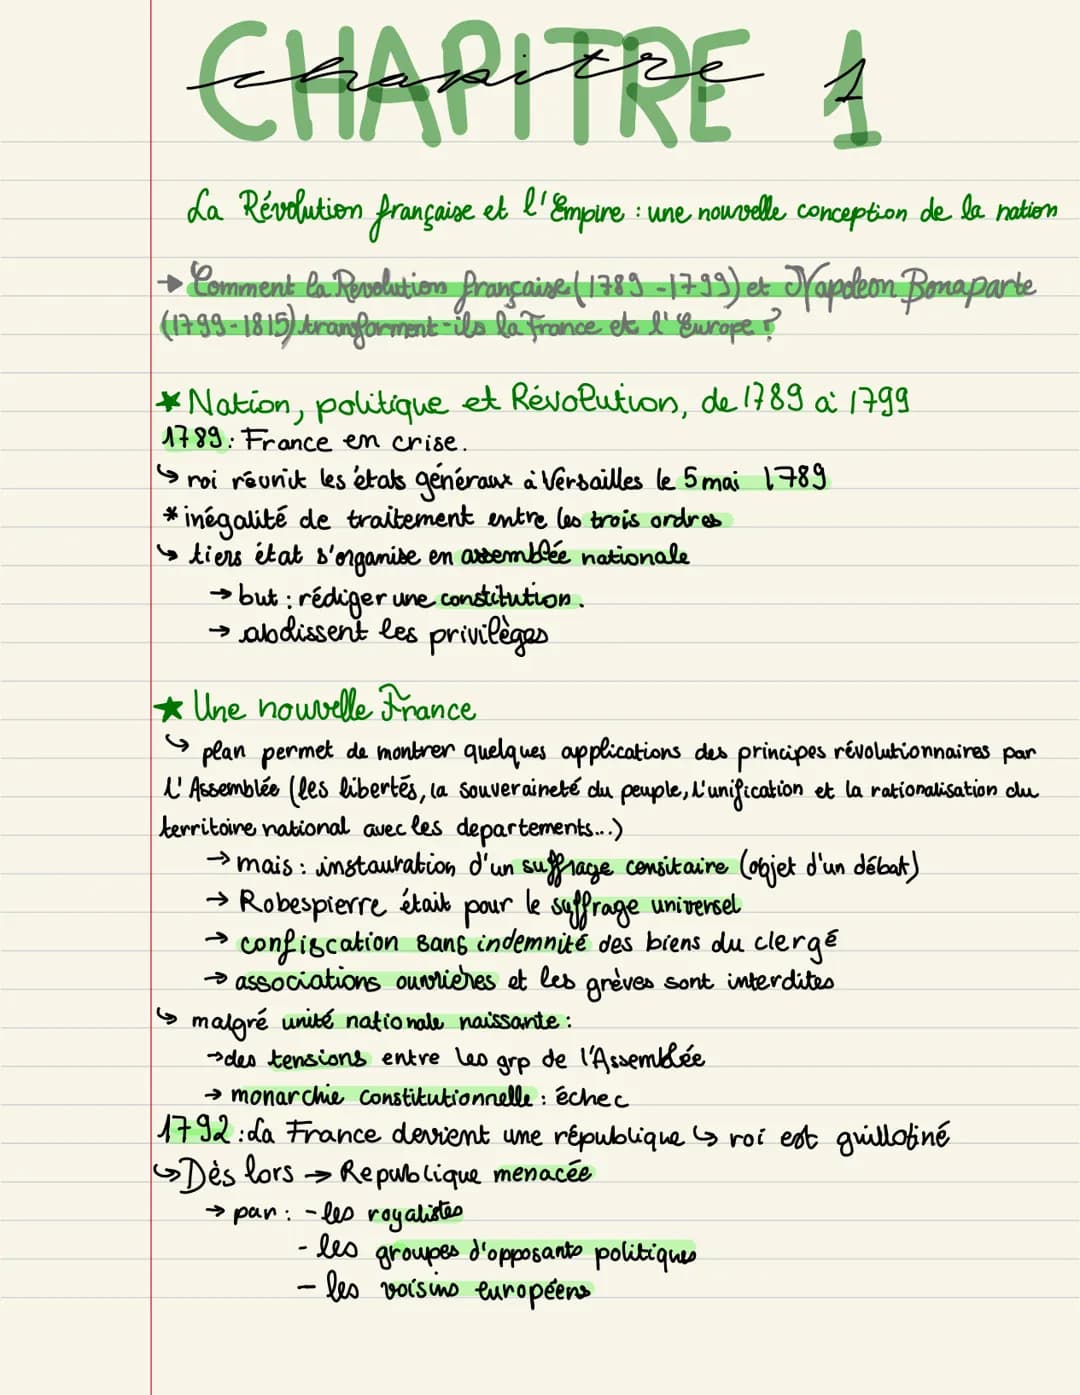 CHAPITRE 1
chapitre 1
La Révolution française et l'Empire : une nouvelle conception de la nation
→ Comment la Révolution française (1789-1799) et Napoléon Bonaparte
(1799-1815) transforment-ils la France et l'Europe ?
★ Nation, politique et Révolution, de 1789 à 1799
1789 : France en crise.
↳ roi réunit les états généraux à Versailles le 5 mai 1789
* inégalité de traitement entre les trois ordres
↳ tiers état s'organise en assemblée nationale
→ but : rédiger une constitution.
→ abolissent les privilèges
★ Une nouvelle France
↳ plan permet de montrer quelques applications des principes révolutionnaires par
l'Assemblée (les libertés, la souveraineté du peuple, l'unification et la rationalisation du
territoire national avec les departements...)
→ mais : instauration d'un suffrage censitaire (objet d'un débat)
→ Robespierre était pour le suffrage universel
→ confiscation sans indemnité des biens du clergé
→ associations ouvrières et les grèves sont interdites
↳ malgré unité nationale naissante :
→ des tensions entre les grp de l'Assemblée
→ monarchie constitutionnelle : échec
1792 : La France devient une république ↳ roi est guillotiné
↳ Dès lors → Republique menacée
→ par : - les royalistes
- les groupes d'opposants politiques
- les voisins européens